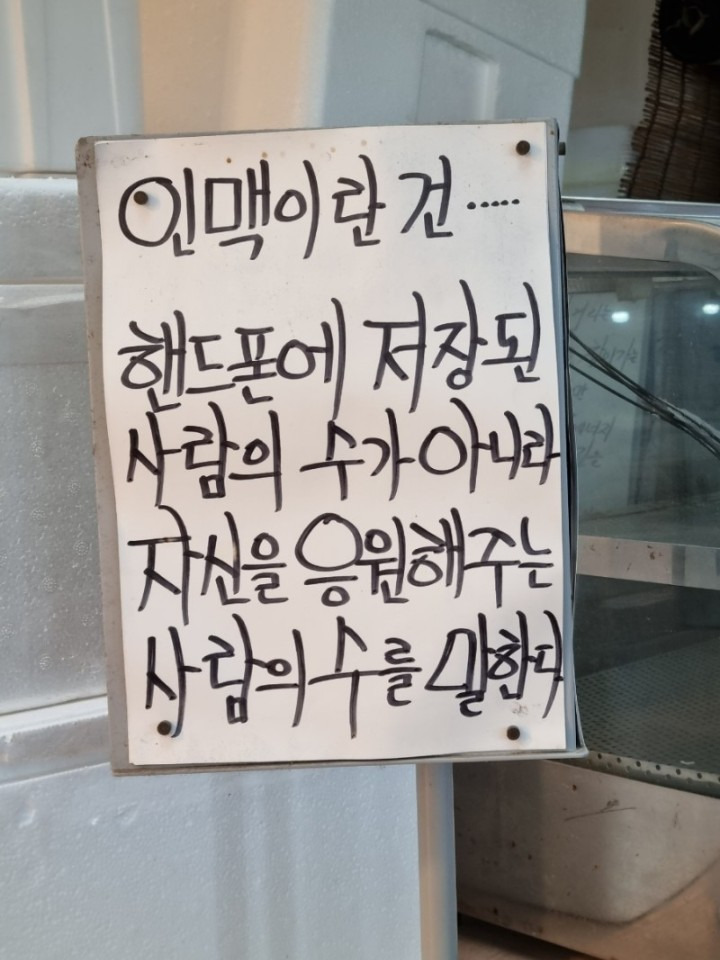 인맥이란 건.....
핸드폰에 저장된
사람의 수가 아니라
자신을 응원해주는
사람의 수를 말한다